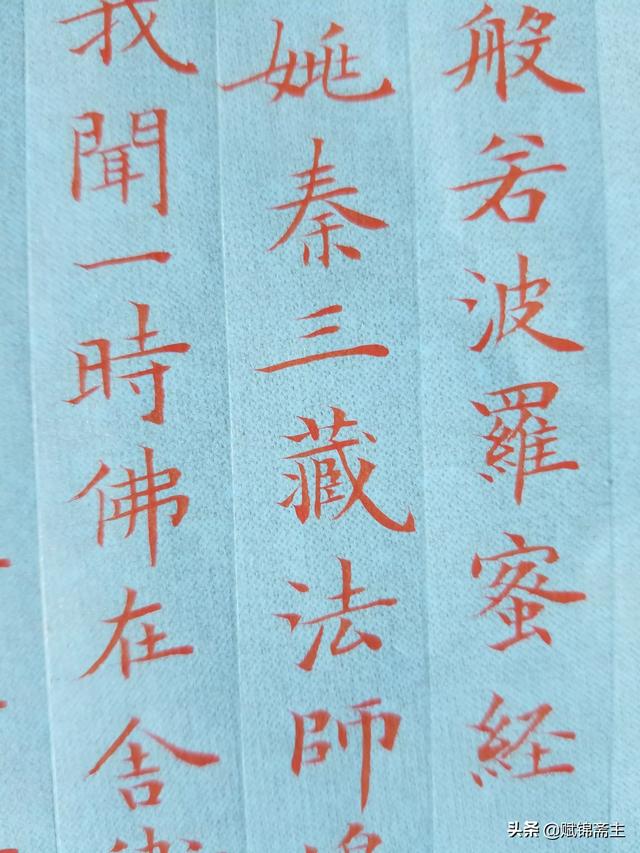 般若波羅蜜経
姚秦三藏法師
我聞一時佛在舎
头条 @赋锦斋主